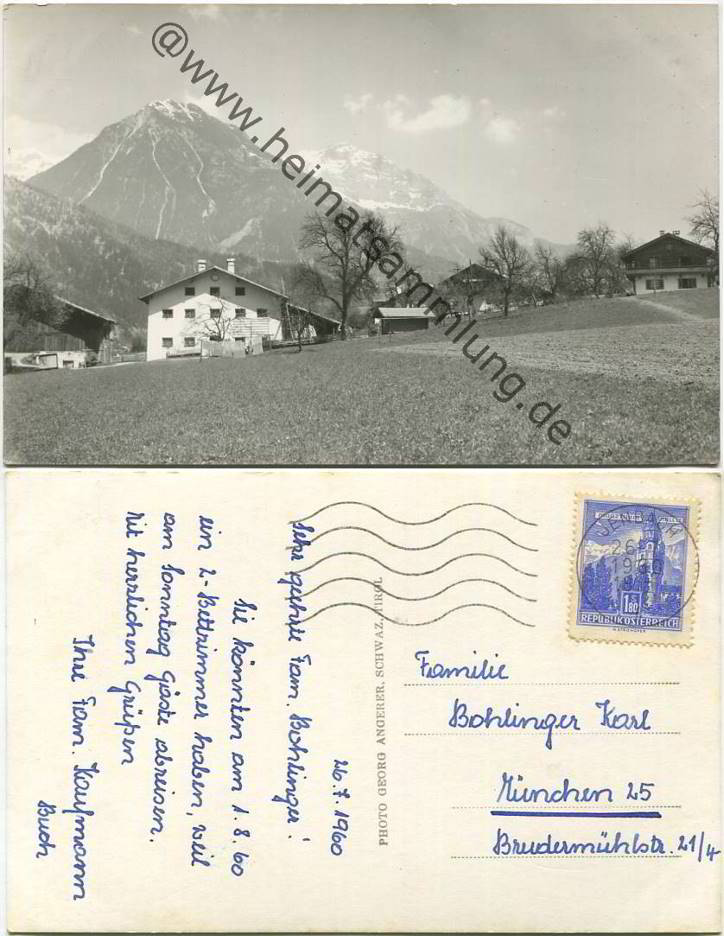 @www.heimatsammlung.de
26.7.1960
Sehr geehrte Fam. Bohlinger!
Sie könnten am 1.8.60
ein 2-Bettzimmer haben, weil
am Sonntag Gäste abreisen.
Mit herzlichen Grüßen
Ihre Fam. Kaufmann
Buch
PHOTO GEORG ANGERER, SCHWAZ, TIROL
JENBACH
26.
1960
1.80
REPUBLIK ÖSTERREICH
Familie
Bohlinger Karl
München 25
Brudermühlstr. 21/4